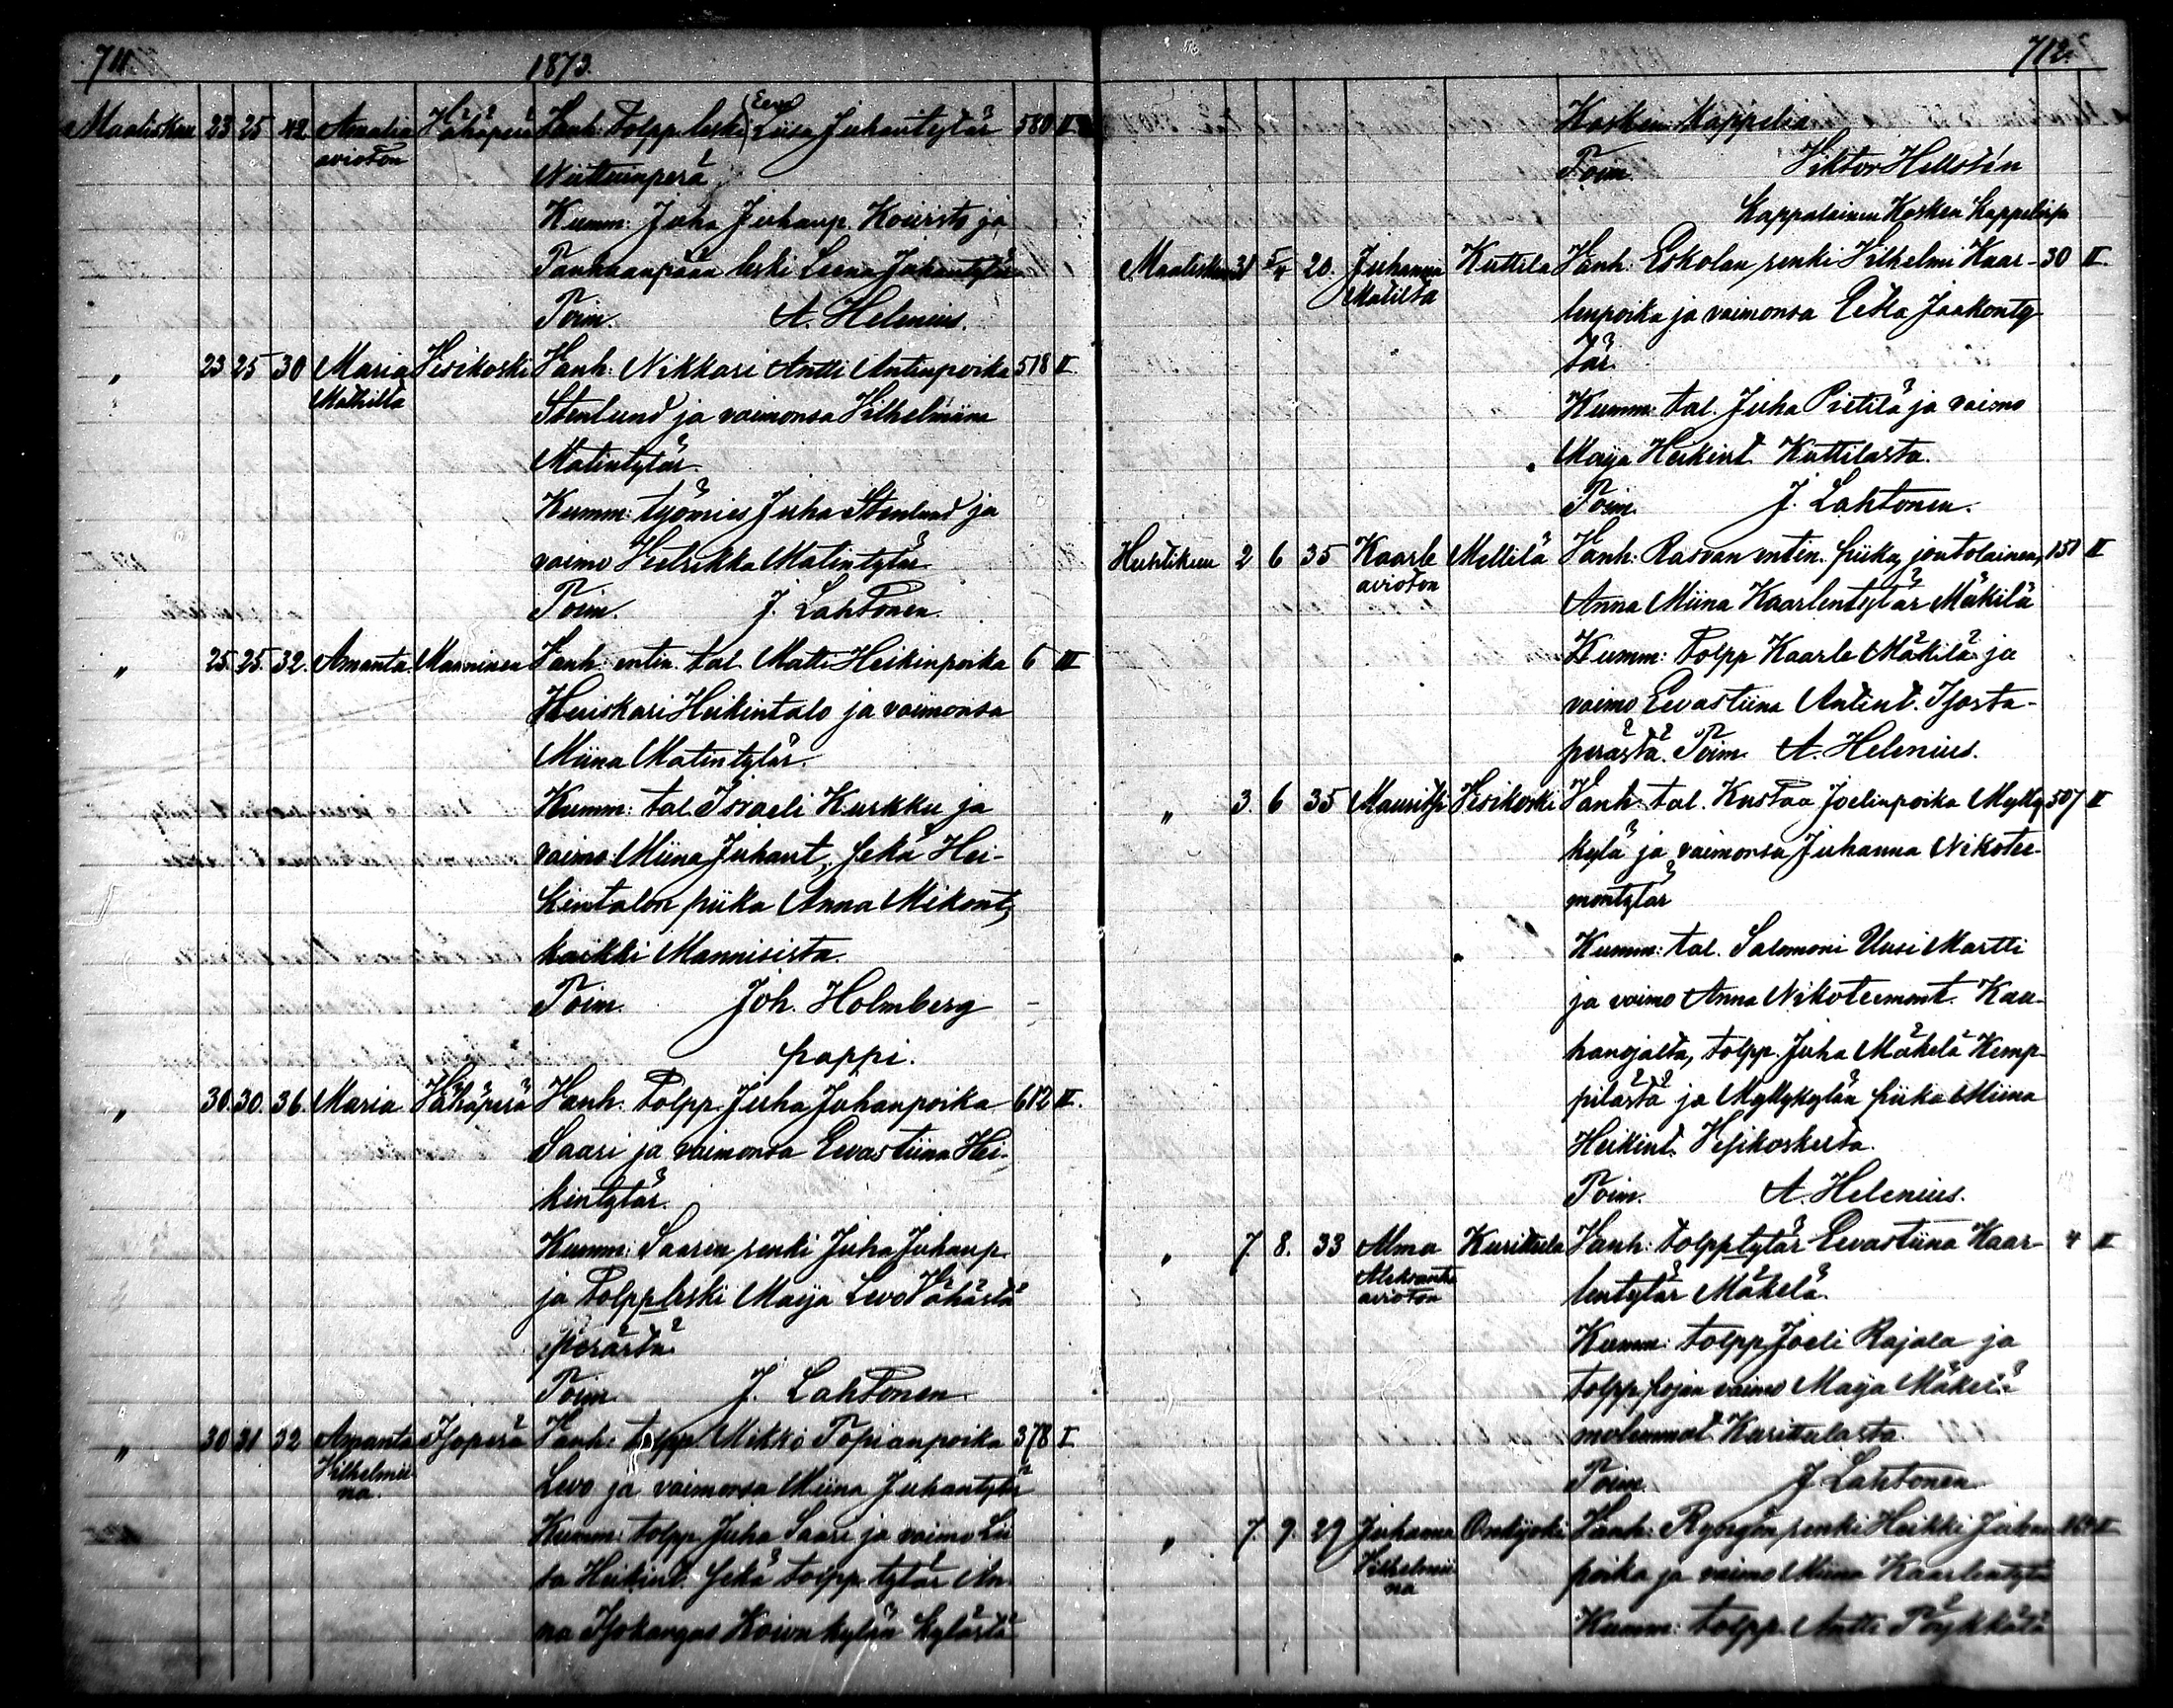 711
1873.
Maaliskuu 23 25 42 Amalia Vähäperä Vanh: Tolpp. leski (Eeva) Liisa Juhantytär 580 II
avioton
Niittunperä
Kumm: Juha Juhanp. Koivisto ja
Tanhuanpään leski Leena Juhantytär
Toim. A. Helenius.
" 23 25 30 Maria Vesikoski Vanh: Nikkari Antti Antinpoika 518 II
Mathilta
Stenlund ja vaimonsa Vilhelmiina
Matintytär.
Kumm: työmies Juha Stenlund ja
vaimo Hetrikka Matintytär
Toim. J. Lahtonen.
" 25. 25. 32. Amanta Manninen Vanh: entin. tal. Matti Heikinpoika 6 III
Heiskari Heikintalo ja vaimonsa
Miina Matintytär.
Kumm: tal. Israeli Kurkku ja
vaimo Miina Juhant., sekä Hei-
kintalon piika Anna Mikont.,
kaikki Mannisista.
Toim. Joh. Holmberg
pappi.
" 30. 30. 36. Maria Vähäperä Vanh. Tolpp. Juha Juhanpoika 612 II.
Saari ja vaimonsa Eevastiina Hei-
kintytär.
Kumm: Saaren renki Juha Juhanp.
ja Tolpp leski Maija Levo Vähästä
perästä
Toim. J. Lahtonen
" 30 31 32 Amanta Isoperä Vanh: tolpp. Mikko Topianpoika 378 I
Vilhelmii-
na.
Levo ja vaimonsa Miina Juhantytär
Kumm: tolpp. Juha Saari ja vaimo Lii
sa Heikint. sekä tolpp. tytär An-
na Isokangas Koivukylän kylästä
712.
Kosken Kappelia
Toim. Viktor Hellstén
kappalainen Kosken kappelissa
Maaliskuu 31 5/4 20. Juhanna Kuttila Vanh: Eskolan renki Vilhelmi Kaar- 30 II.
Matilta
lenpoika ja vaimonsa Eeta Jaakonty
tär.
Kumm: tal. Juha Pietilä ja vaimo
Maija Heikint. Kuttilasta.
Toim. J. Lahtonen.
Huhtikuu 2 6 35 Kaarle Mellilä Vanh: Rasvan entin. piika, joutolainen, 151 II
avioton
Anna Miina Kaarlentytär Mäkilä
Kumm: tolpp Kaarle Mäkilä ja
vaimo Eevastiina Antint. Isosta-
perästä. Toim. A. Helenius.
" 3. 6 35 Mauritsi Vesikoski Vanh: tal. Kustaa Joelinpoika Mylly 507 II
kylä ja vaimonsa Juhanna Nikotee-
montytär
Kumm: tal. Salomoni Uusi Martti
ja vaimo Anna Nikoteemont. Kau-
hanojalta, tolpp. Juha Mäkelä Kemp-
pilästä ja Myllykylän piika Miina
Heikint. Vesikoskesta.
Toim. A. Helenius.
" 7. 8. 33 Alma Kurittula Vanh: tolpp tytär Eevastiina Kaar- 4 II
Aleksanta
avioton
lentytär Mäkelä.
Kumm: tolpp. Joeli Rajala ja
tolpp. pojan vaimo Maija Mäkelä
molemmat Kurittulasta.
Toim. J. Lahtonen
" 7. 9. 29 Juhanna Onkijoki Vanh: renki Heikki Juhan II
Vilhelmii
na
poika ja vaimo Miina Kaarlentytär
Kumm: tolpp. Antti Pöykkälä